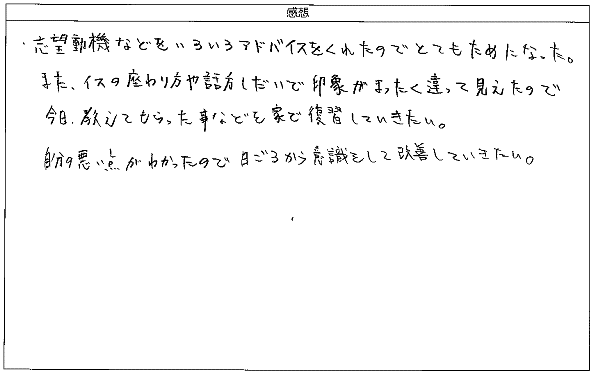 感想
・志望動機などをいろいろアドバイスをくれたのでとてもためになった。
また、イスの座わり方や話方しだいで印象がまったく違って見えたので
今日、教えてもらった事などを家で復習していきたい。
自分の悪い点がわかったので日ごろから意識をして改善していきたい。